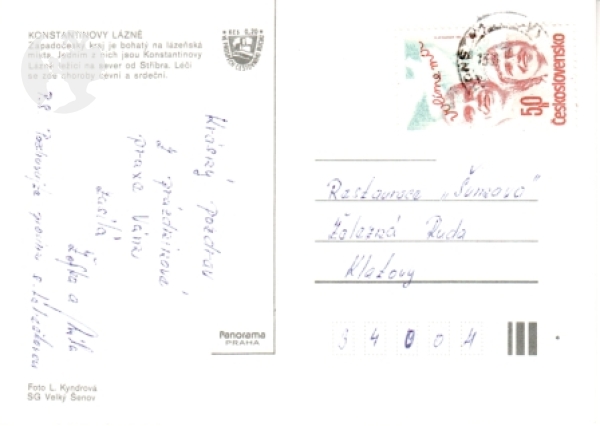 KONSTANTINOVY LÁZNĚ
Západočeský kraj je bohatý na lázeňská
místa. Jedním z nich jsou Konstantinovy
Lázně ležící na sever od Stříbra. Léčí
se zde choroby cévní a srdeční.
KČS 0,20
Krásný pozdrav
z prázdninové
praxe Vám
zasílá
Panorama
PRAHA
Foto L. Kyndrová
SG Velký Šenov
50
Československo
Restaurace „Šumava"
Železná Ruda
Klatovy
34004